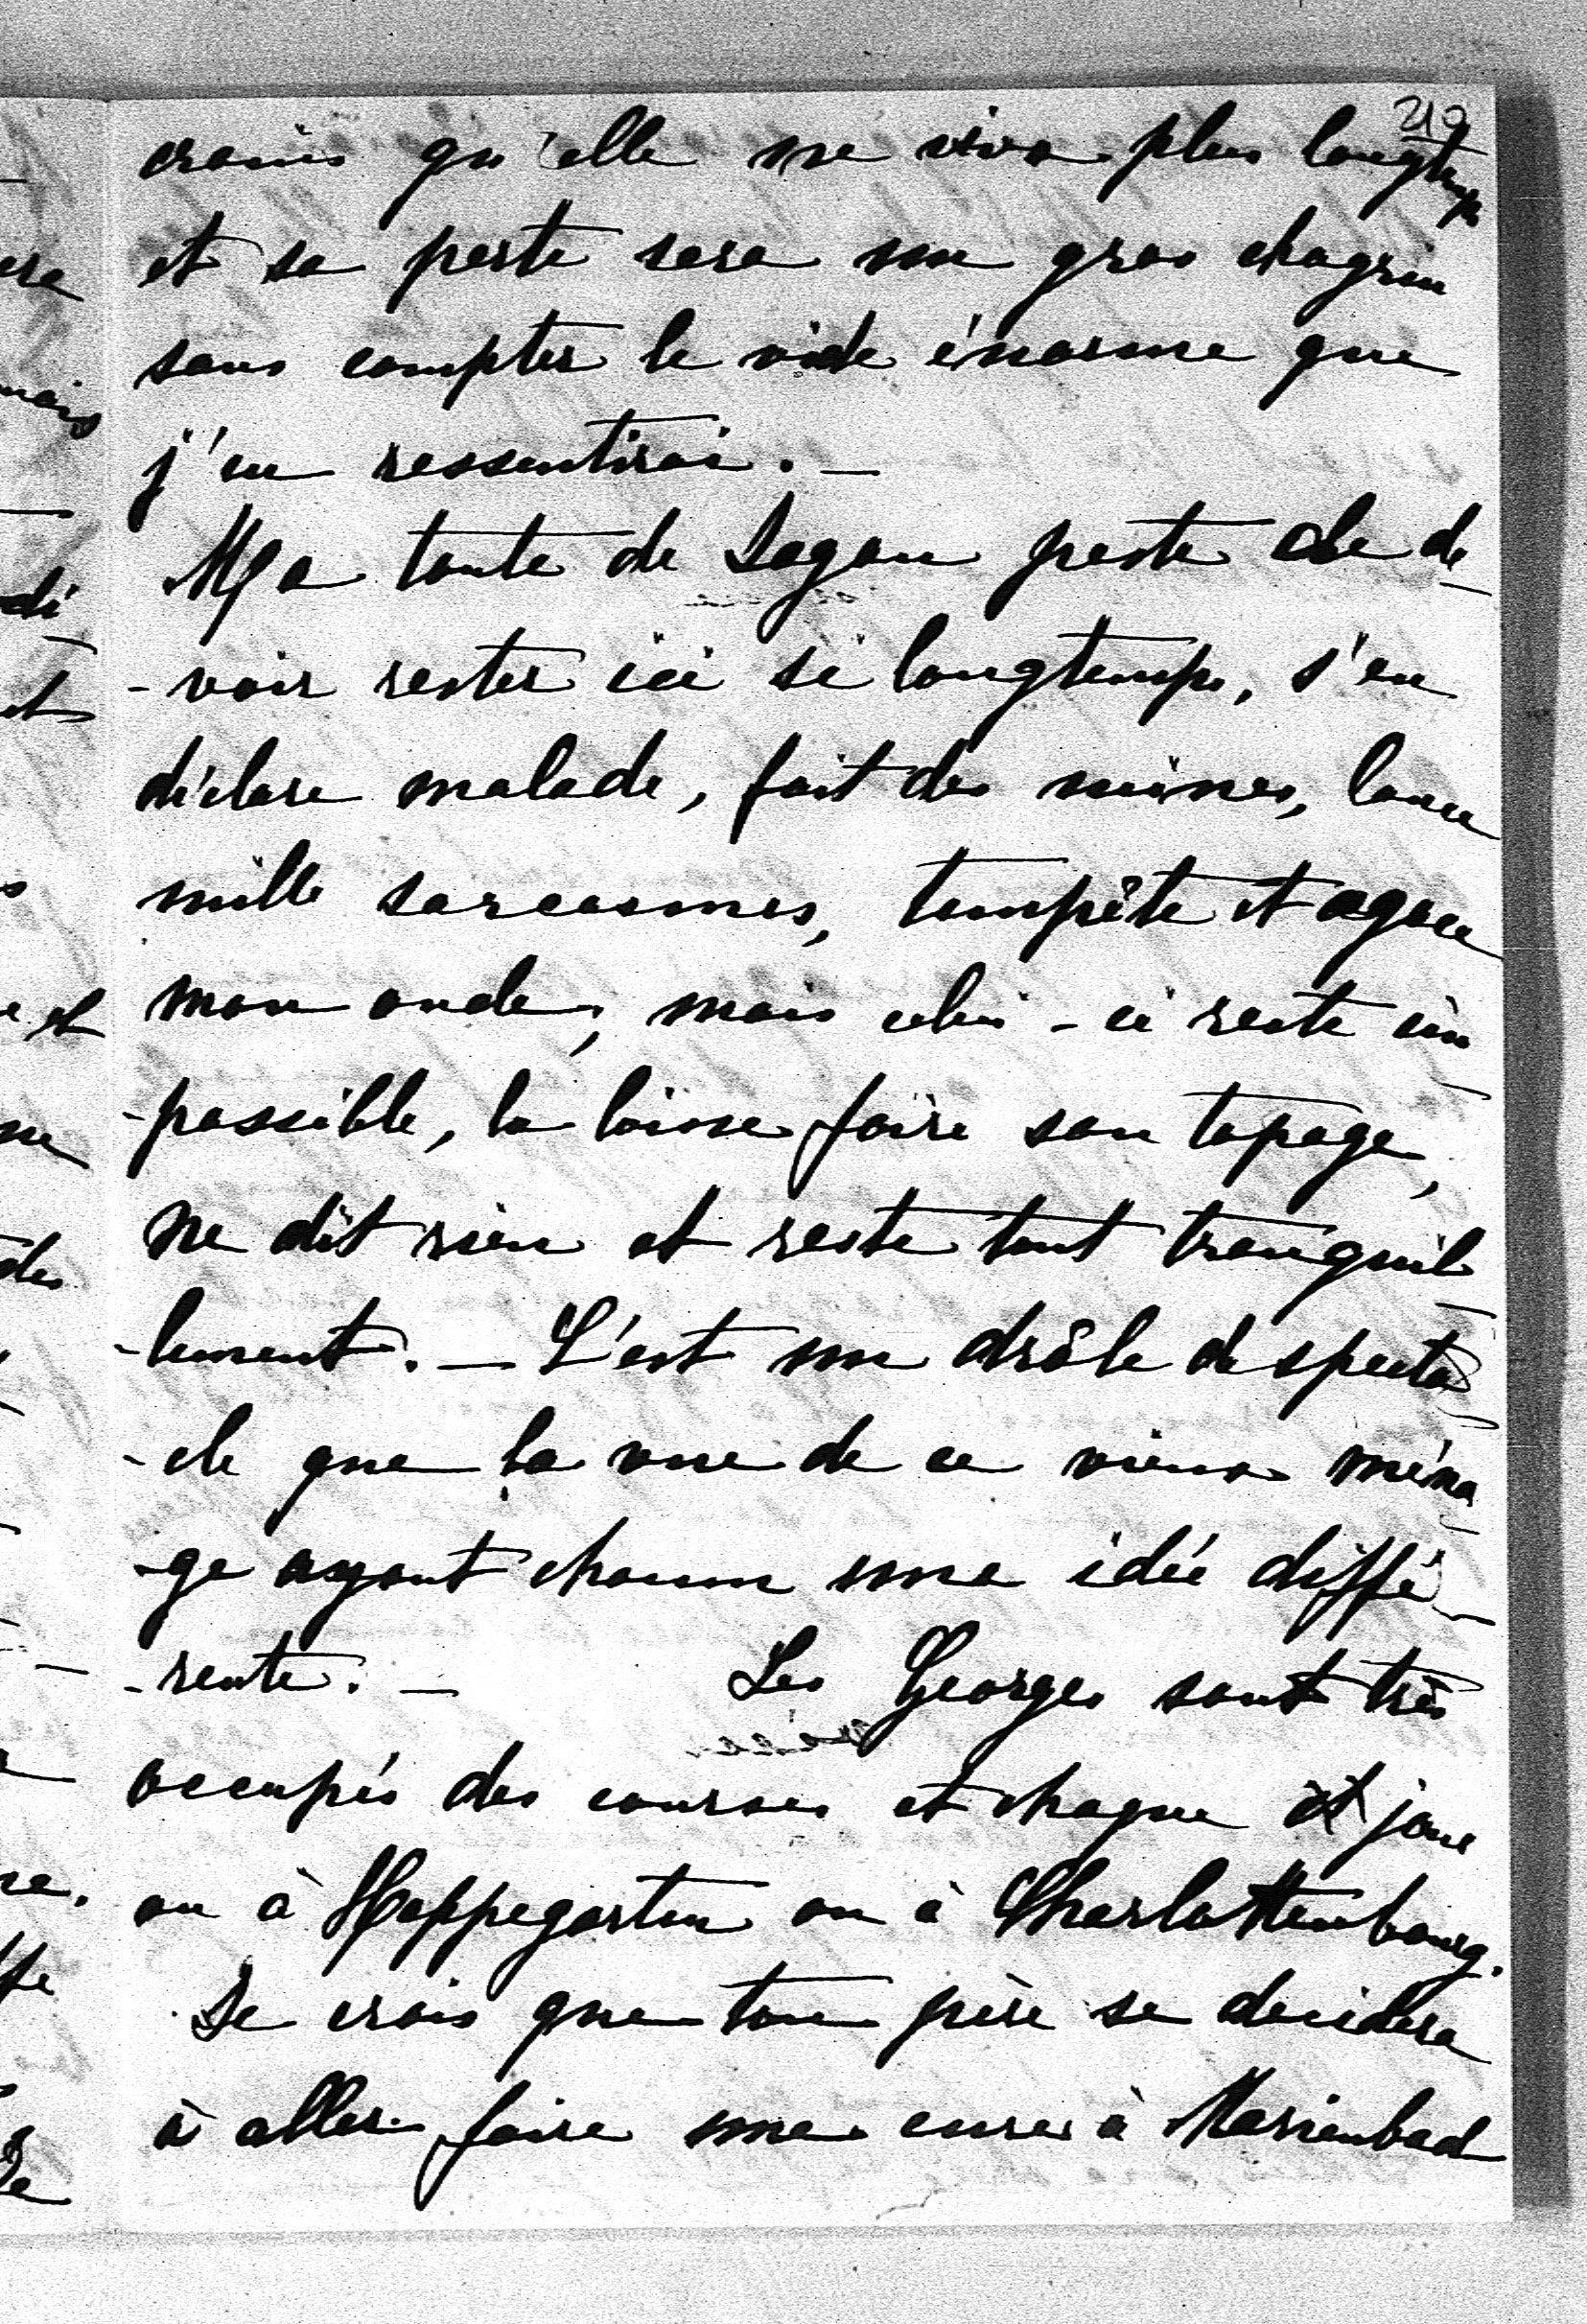 219
crains qu'elle ne vive plus longtemps
et sa perte sera un gros chagrin
sans compter le vide énorme que
j'en ressentirai. —
Ma tante de Sagan peste de de
-voir rester ici si longtemps, s'en
déclare malade, fait des mines, lance
mille sarcasmes, tempête et agace
mon oncle; mais celui-ci reste im
-passible, la laisse faire son tapage,
ne dit rien et reste tout tranquil
-lement. — C'est un drôle de specta
-cle que la vue de ce vieux ména
-ge ayant chacun une idée diffé-
-rente. — Les Georges sont très
occupés des courses et chaque jour
ou à Hoppegarten ou à Charlottenbourg.
Je crois que ton père se decidera
à aller faire une cure à Marienbad